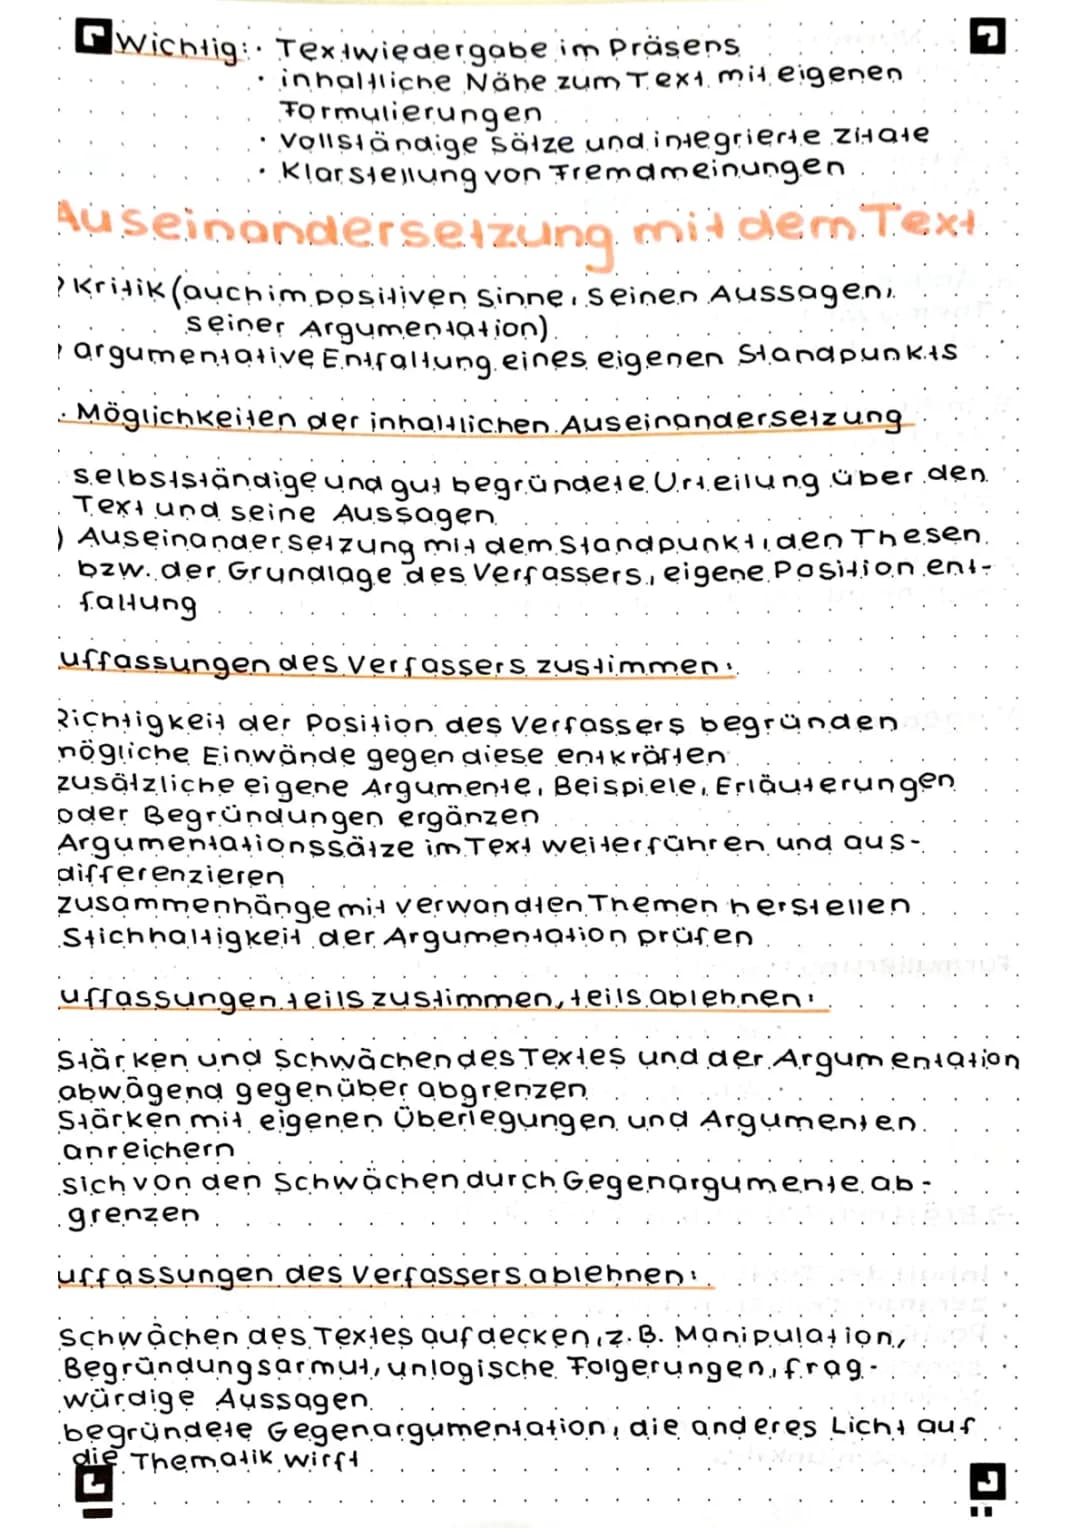 Wichtig: · Textwiedergabe im Präsens
· inhaltliche Nähe zum Text mit eigenen
Formulierungen
· vollständige Sätze und integrierte Zitate
· Klarstellung von Fremdmeinungen
Auseinandersetzung mit dem Text
Kritik (auch im positiven Sinne, seinen Aussagen,
seiner Argumentation)
argumentative Entfaltung eines eigenen Standpunkts
. Möglichkeiten der inhaltlichen Auseinandersetzung
selbstständige und gut begründete Urteilung über den
Text und seine Aussagen
) Auseinandersetzung mit dem Standpunkt, den Thesen
bzw. der Grundlage des Verfassers, eigene Position ent-
faltung
uffassungen des Verfassers zustimmen:
Richtigkeit der Position des Verfassers begründen
mögliche Einwände gegen diese entkräften
zusätzliche eigene Argumente, Beispiele, Erläuterungen
oder Begründungen ergänzen
Argumentationssätze im Text weiterführen und aus-
differenzieren
zusammenhänge mit verwandten Themen herstellen
Stichhaltigkeit der Argumentation prüfen
uffassungen teils zustimmen, teils ablehnen:
Stärken und Schwächen des Textes und der Argumentation
abwägend gegenüber abgrenzen
Stärken mit eigenen Überlegungen und Argumenten
anreichern
sich von den Schwächen durch Gegenargumente ab-
grenzen
uffassungen des Verfassers ablehnen:
Schwächen des Textes aufdecken, z.B. Manipulation,
Begründungsarmut, unlogische Folgerungen, frag-
würdige Aussagen
begründete Gegenargumentation, die anderes Licht auf
die Thematik wirft